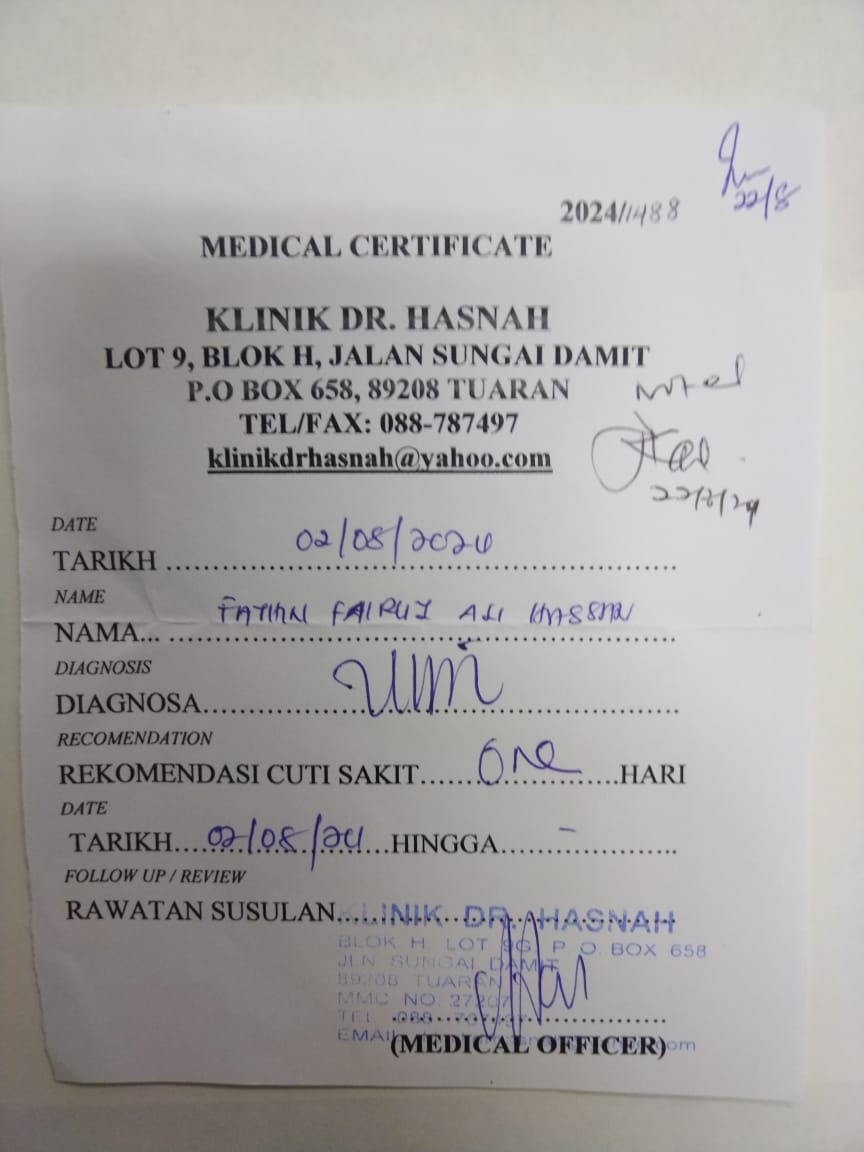 22/8
2024/1488
MEDICAL CERTIFICATE
KLINIK DR. HASNAH
LOT 9, BLOK H, JALAN SUNGAI DAMIT
P.O BOX 658, 89208 TUARAN
TEL/FAX: 088-787497
klinikdrhasnah@yahoo.com
22/8/24
DATE
TARIKH ........ 02/08/2024 ........
NAME
NAMA... FAIRUZ HASSAN
DIAGNOSIS
DIAGNOSA........
RECOMENDATION
REKOMENDASI CUTI SAKIT...... One ......HARI
DATE
TARIKH.... 02/08/24 ...HINGGA..... - .....
FOLLOW UP / REVIEW
RAWATAN SUSULAN........
KLINIK DR. HASNAH
BLOK H, LOT P. O. BOX 658
JLN SUNGAI DAMIT
89208 TUARAN
MMC NO: 27207
TEL
EMAIL
(MEDICAL OFFICER)